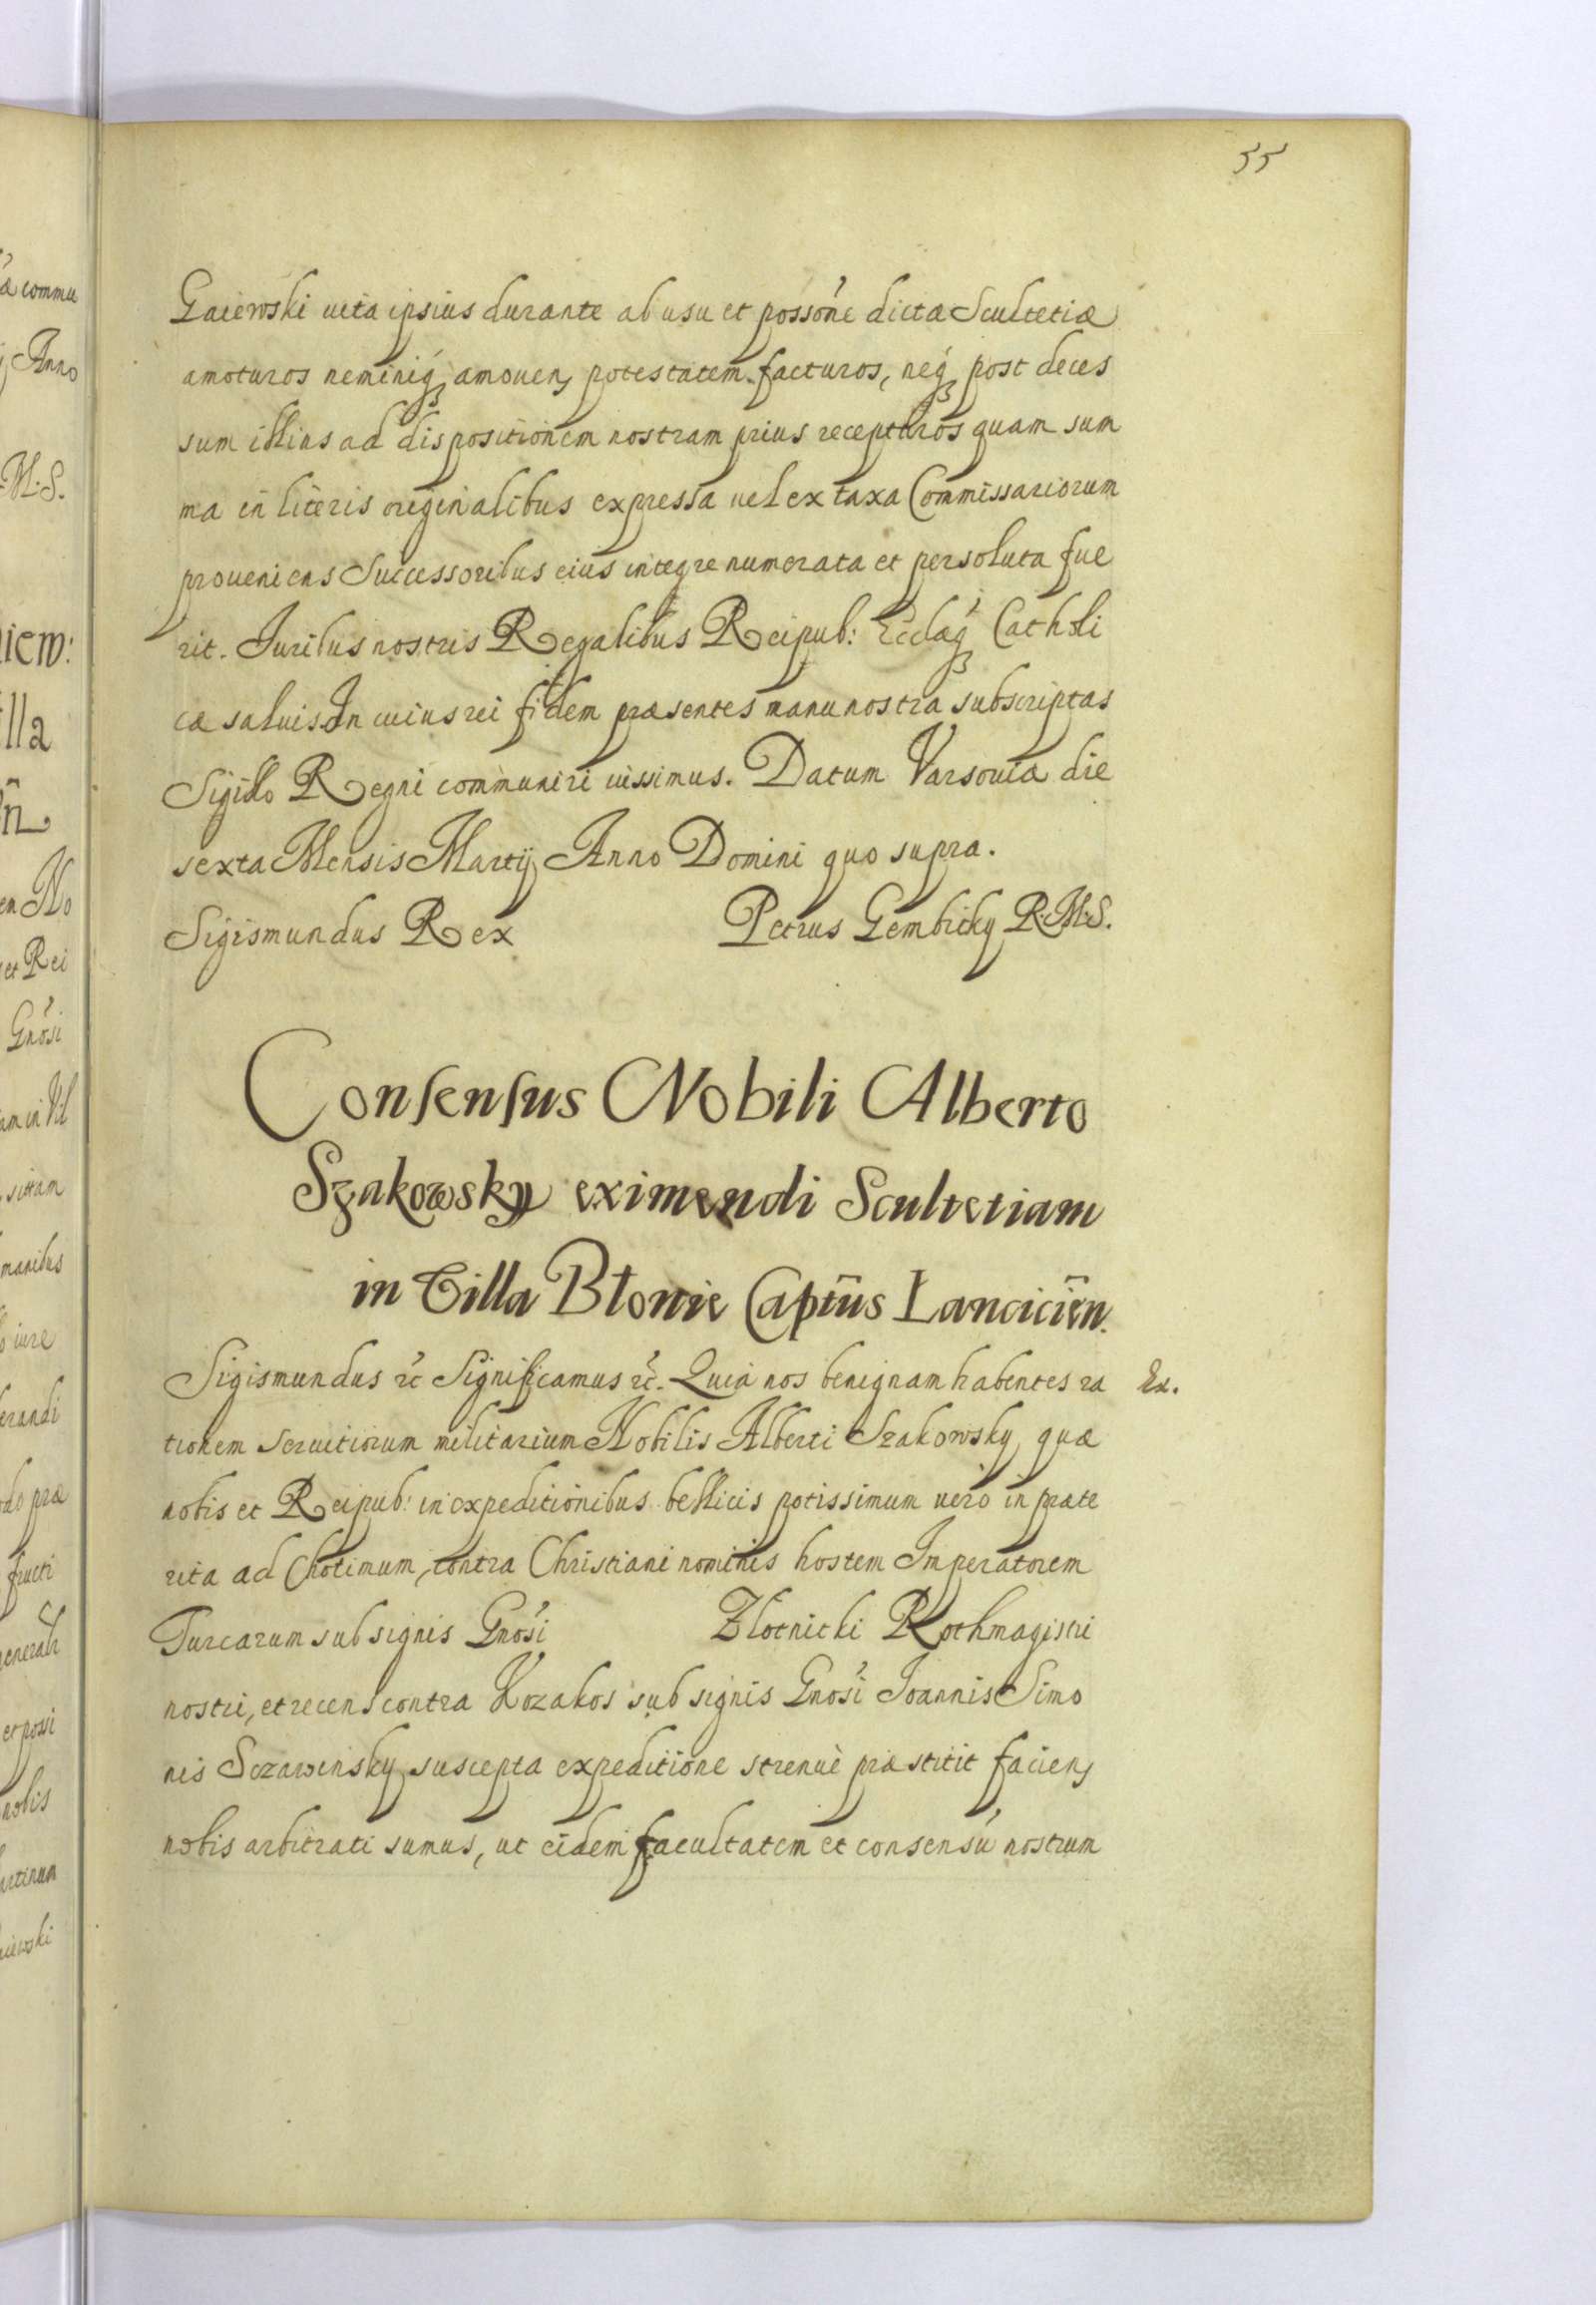 55
Gaiewski uita ipsius durante ab usu et possōne dicta Scultetiæ
amoturos neminiq́ꝫ amouen, potestatem facturos, neq́ꝫ post deces
sum illius ad dispositionem nostram prius recepturos quam sum
ma in literis originalibus expressa uel ex taxa Commissariorum
proueniens Successoribus eius integre numerata et persoluta fue
rit. Iuribus nostris Regalibus Reipub: Eccłæq́ꝫ Catholi
cæ saluis. In cuius rei fidem præsentes manu nostra subscriptas
Sigillo Regni communiri iussimus. Datum Varsouiæ die
sexta Mensis Martij Anno Domini quo supra.
Sigismundus Rex Petrus Gembicky R.M.S.
Consensus Nobili Alberto
Szakowsky eximendi Scultetiam
in Villa Błonie Captũs Lancicien̄.
Sigismundus ꝛc̃ Significamus ꝛc̃. Quia nos benignam habentes ra
Ex.
tionem seruitiorum militarium Nobilis Alberti Szakowsky, quæ
nobis et Reipub: in expeditionibus bellicis potissimum uero in præte
rita ad Chotimum, contra Christiani nominis hostem Imperatorem
Turcarum sub signis Gnõsi Zlotnicki Rothmagistri
nostri, et recens contra Kozakos sub signis Gnõsi Joannis Simo
nis Sczawinsky suscepta expeditione strenuè præstitit facien,
nobis arbitrati sumus, ut eidem facultatem et consensū nostrum
æ commu
Anno
M.S.
iew:
lla
en No
et Rei
Gnõsi
am in Vil
sitam
manibus
iure
erandi
do præ
fructi
generali
et possi
nobis
artinum
aiewski